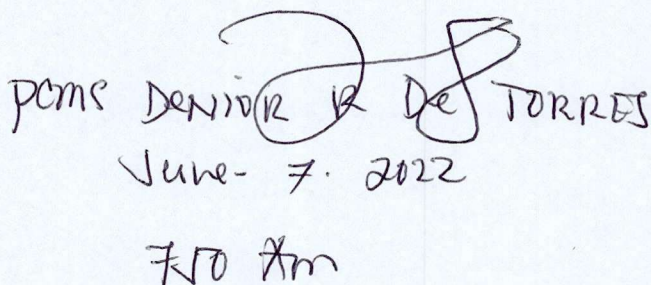 PCMS DENIOR R De TORRES
June- 7. 2022
750 Am